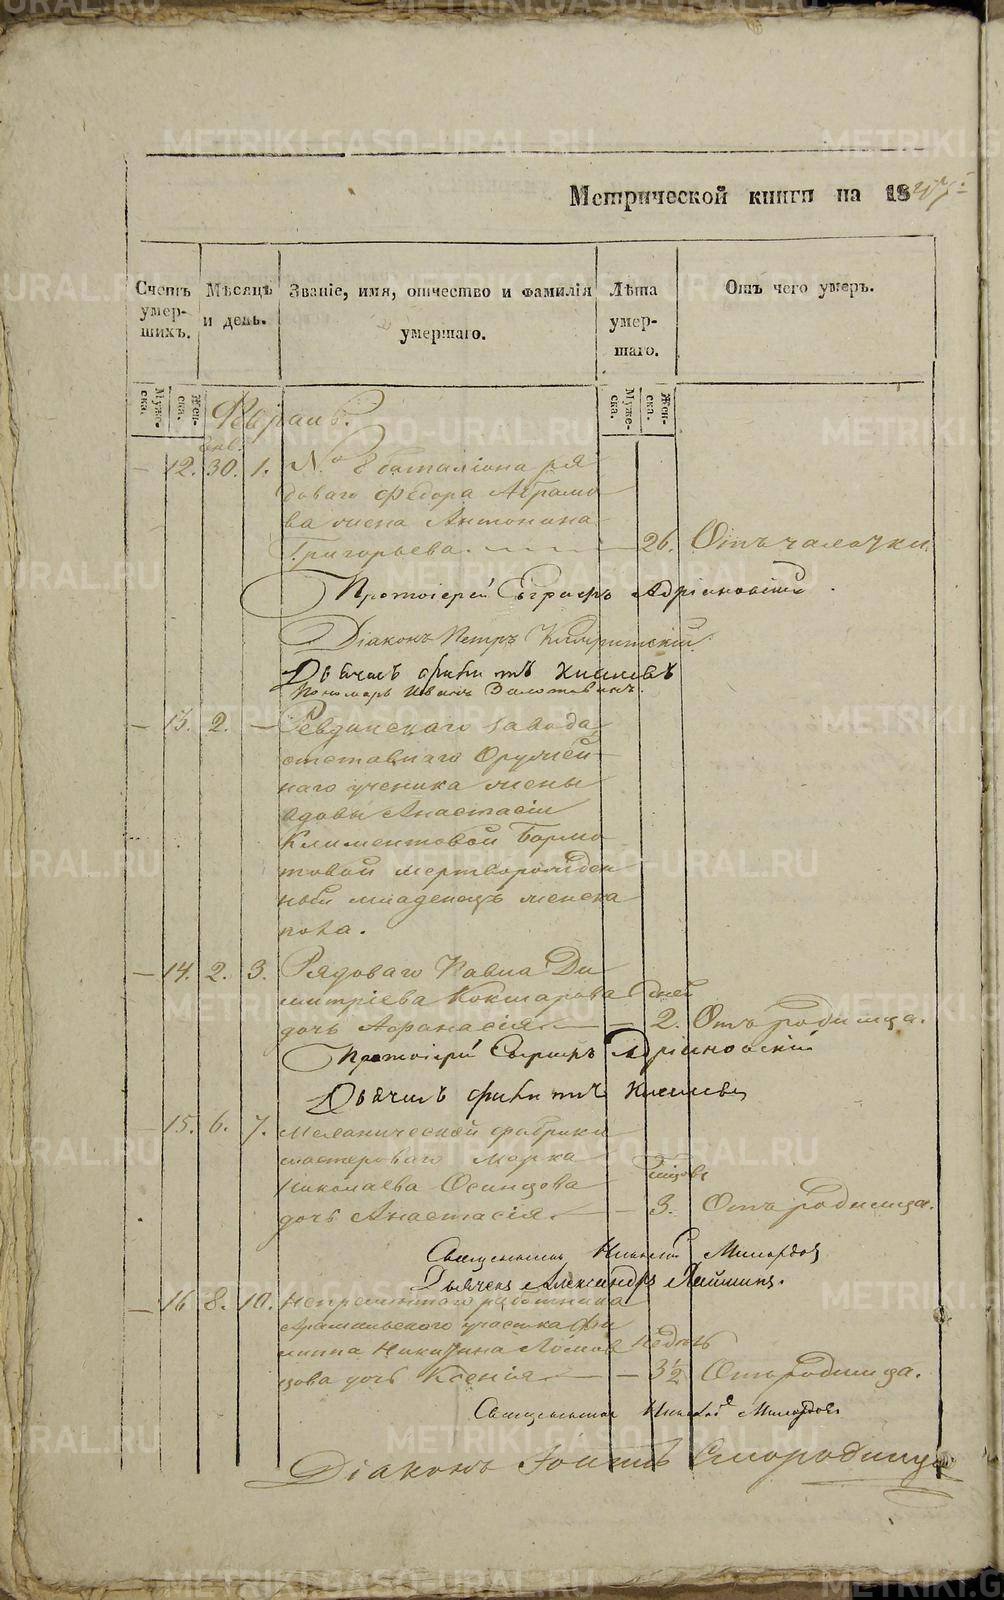 Метрической книги на 1847
Счетъ умер-шихъ.
Мѣсяцъ и день.
Званіе, имя, отчество и фамилія умершаго.
Лѣта умер-шаго.
Отъ чего умеръ.
Муже-ска.
Жен-ска.
Муже-ска.
Жен-ска.
Февраль.
Янв.
— 12. 30. 1. № 8 баталіона ря
доваго Федора Абрамо
ва жена Антонина
Григорьева. 26. Отъ чахотки
Протоіерей Евграфъ Адріановскій
Діаконъ Петръ
Дьячекъ Филиппъ Киселевъ
Пономарь Иванъ Золотавинъ.
— 13. 2. — Ревдинскаго завода
отставнаго Оружей
наго ученика жены
вдовы Анастасіи
Климентовой Бормо
товой мертворожден
ный младенецъ женска
пола.
— 14. 2. 3. Рядоваго Павла Ди
митріева Кокшарова дней
дочь Афанасія 2. Отъ родимца.
Протоіерей Евграфъ Адріановскій
Дьячекъ Филиппъ Киселевъ
15. 6. 7. Механической фабрики
мастероваго Марка
Николаева Осинцова
дочь Анастасія. — 3. Отъ родимца.
Священникъ Николай Милордовъ
Дьячекъ Александръ
— 16 8. 10. Непременнаго работника
Арамильского участка Фи
липпа Никитина Ломов недѣль
цова дочь Ксенія — 3½ Отъ родимца.
Священникъ Николай Милордовъ
Діаконъ Іоаннъ Смородинцовъ
METRIKI.GASO-URAL.RU